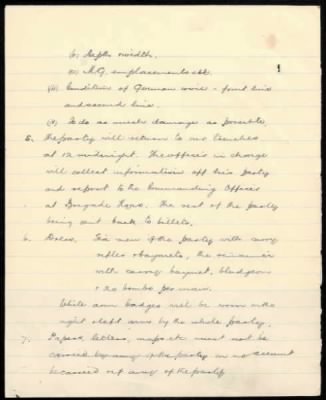 (b) Depth & width.
(c) M.G. emplacements etc.
(iii) Condition of German wire - front line
and second line.
(iv) To do as much damage as possible.
5. The party will return to our trenches
at 12 midnight. The officer in charge
will collect information off his party
and report to the Commanding Officer
at Brigade Hqrs. The rest of the party
being sent back to billets.
6. Dress. Six men of the party will carry
rifles & bayonets, the remainder
will carry bayonet, bludgeons
& 20 bombs per man.
White arm badges will be worn on the
right & left arms by the whole party.
7. Papers, letters, maps etc must not be
carried by any of the party on no account
be carried out any of the party